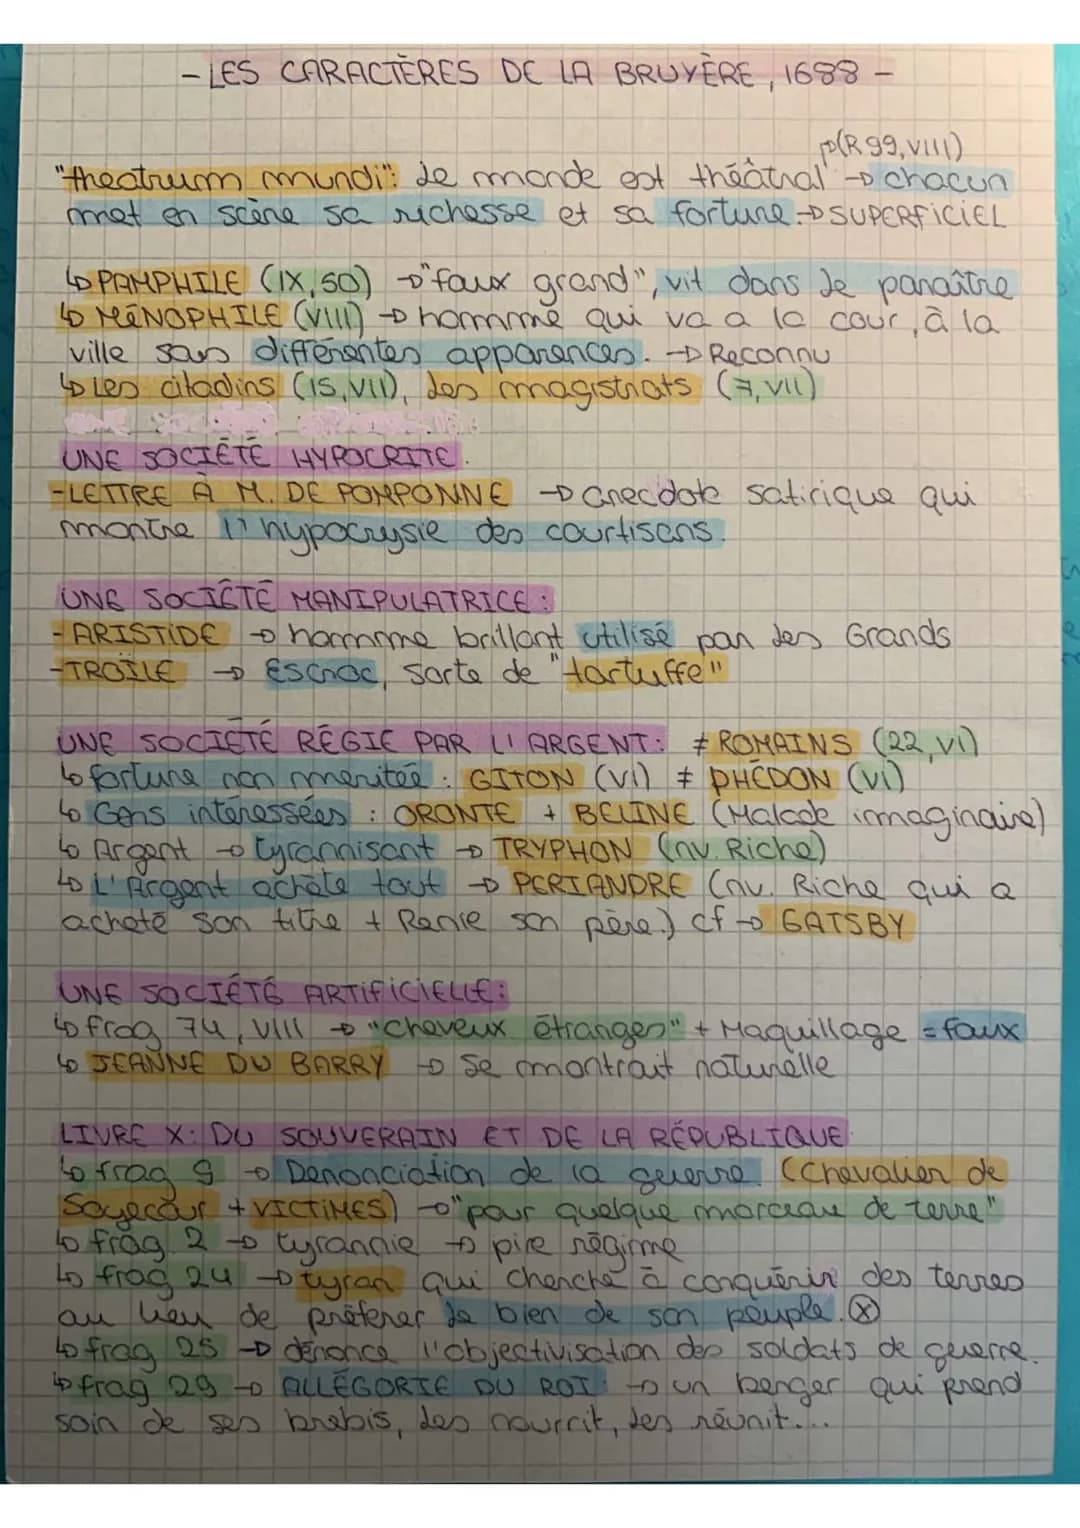 - LES CARACTÈRES DE LA BRUYÈRE, 1688 -
p(R99, VIII)
"theatrum mundi": le monde est théâtral → chacun
met en scène sa richesse et sa fortune → SUPERFICIEL
↳ PAMPHILE (IX, 50) → "faux grand", vit dans le paraître
↳ MÉNOPHILE (VIII) → homme qui va a la cour, à la
ville sous différentes apparences. → Reconnu
↳ Les citadins (15, VII), les magistrats (7, VII)
UNE SOCIÉTÉ HYPOCRITE.
- LETTRE À M. DE POMPONNE → anecdote satirique qui
montre l'hypocrysie des courtisans.
UNE SOCIÉTÉ MANIPULATRICE :
- ARISTIDE → homme brillant utilisé par les Grands
- TROÏLE → Escroc, sorte de "tartuffe"
UNE SOCIÉTÉ RÉGIE PAR L'ARGENT: ≠ ROMAINS (22, VI)
↳ fortune non méritée : GITON (VI) ≠ PHÉDON (VI)
↳ Gens intéressées : ORONTE + BELINE (Malade imaginaire)
↳ Argent → tyrannisant → TRYPHON (nv. Riche)
↳ L'Argent achète tout → PERIANDRE (nv. Riche qui a
acheté son titre + Renie son père.) cf → GATSBY
UNE SOCIÉTÉ ARTIFICIELLE:
↳ frag 74, VIII → "cheveux étranges" + Maquillage = faux
↳ JEANNE DU BARRY → Se montrait naturelle
LIVRE X: DU SOUVERAIN ET DE LA RÉPUBLIQUE
↳ frag 9 → Dénonciation de la guerre. (Chevalier de
Soyecour + VICTIMES) → "pour quelque morceau de terre"
↳ frag. 2 → tyrannie → pire régime
↳ frag 24 → tyran qui cherche à conquérir des terres
au lieu de préférer le bien de son peuple. ⊗
↳ frag 25 → dénonce l'objectivisation des soldats de guerre.
↳ frag 29 → ALLÉGORIE DU ROI: → un berger qui prend
soin de ses brebis, les nourrit, les réunit...